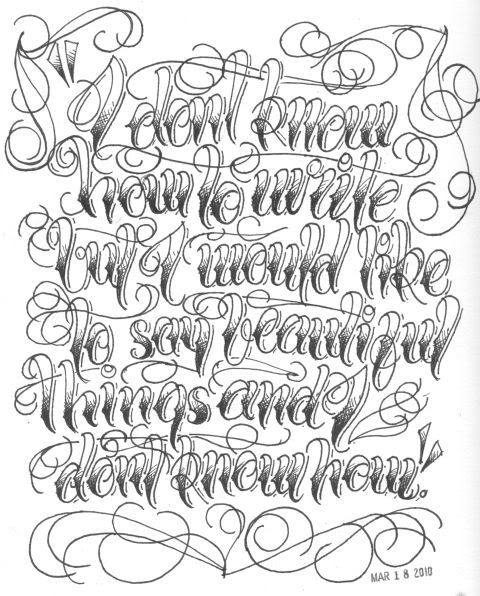 "I don't know
how to write
but I would like
to say beautiful
things and I
don't know how!
MAR 18 2010